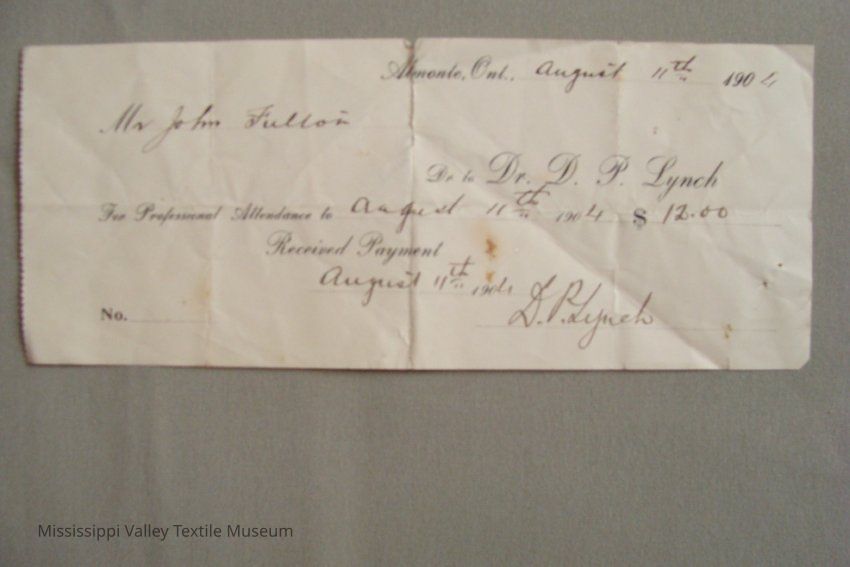 Almonte, Ont., August 11th 1904
Mr John Fulton
Dr to Dr. D. P. Lynch
For Professional Attendance to August 11th 1904 $ 12.00
Received Payment
August 11th 1904
No. D. P. Lynch
Mississippi Valley Textile Museum